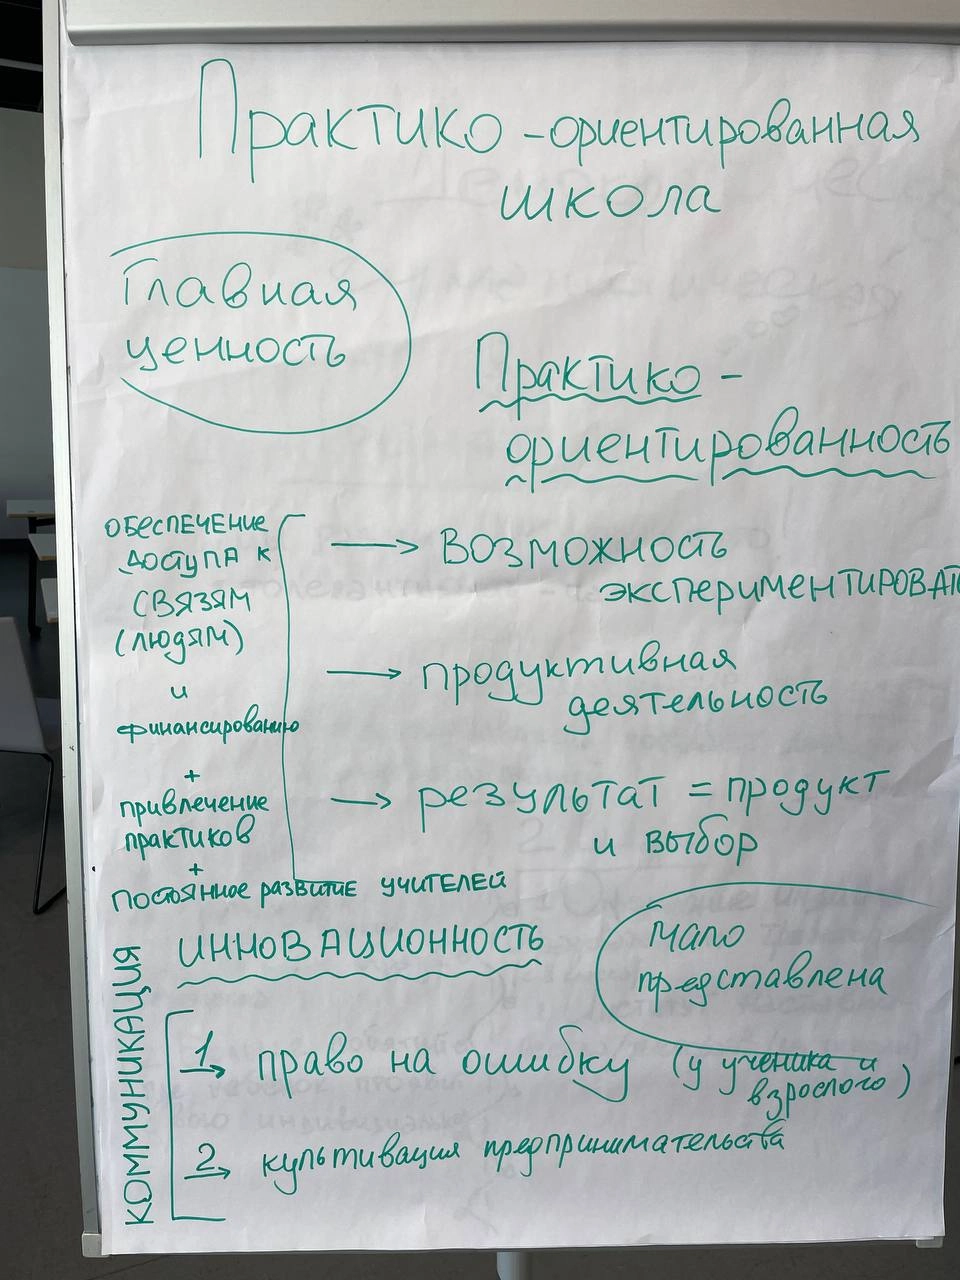 Практико-ориентированная
школа
Главная
ценность
Практико-
ориентированность
обеспечение
доступа к
связям
(людям)
и
финансированию
+
привлечение
практиков
+
постоянное развитие учителей
→ возможность
экспериментироват
→ продуктивная
деятельность
→ результат = продукт
и выбор
инновационность
мало
представлена
коммуникация
1 право на ошибку (у ученика и
взрослого)
2 культивация предпринимательства